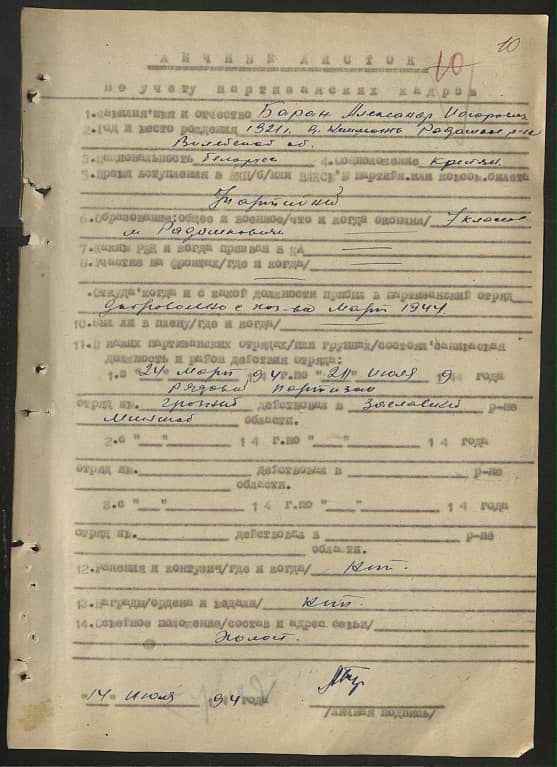 10
10
ЛИЧНЫЙ ЛИСТОК
по учету партизанских кадров
1.Фамилия имя и отчество Баран Александр
2.Год и место рождения 1921 г. д. Радошков. р-на
Вилейской об.
3.Национальность Беларус 4.Соцположение Крестьян.
5.Время вступления в ВКП/б/или ВЛКСМ № партийн.или комсом.билета
6.Образование:общее и военное/что и когда окончил/ 7 классов
м Радашковичи
7.Каким РВК и когда призван в КА
8.Участие на фронтах/где и когда/
9.Откуда,когда и с какой должности прибыл в партизанский отряд
добровольно с Март 1944
10.Был ли в плену/где и когда/
11.В каких партизанских отрядах/или группах/состоял,занимаемая
должность и район действия отряда:
1.с "24" март 194 4 г.по " " июля 194 4 года
Рядовой партизан
отряд им. Грозный действовал в Заславский р-не
Минской области.
2.с " " 194 г.по " " 194 года
отряд им. действовал в р-не
области.
3.с " " 194 г.по " " 194 года
отряд им. действовал в р-не
области.
12.Ранения и контузии/где и когда/ нет.
13.Награды/ордена и медали/ нет.
14.Семейное положение/состав и адрес семьи/
Холост.
"14" июля 194 года
/личная подпись/